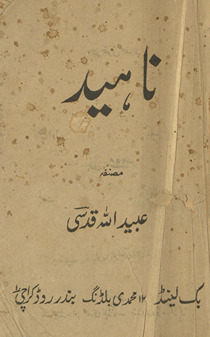 ناہید
مصنفہ
عبید اللہ قدسی
بک لینڈ ۱۲ محمدی بلڈنگ بندر روڈ کراچی